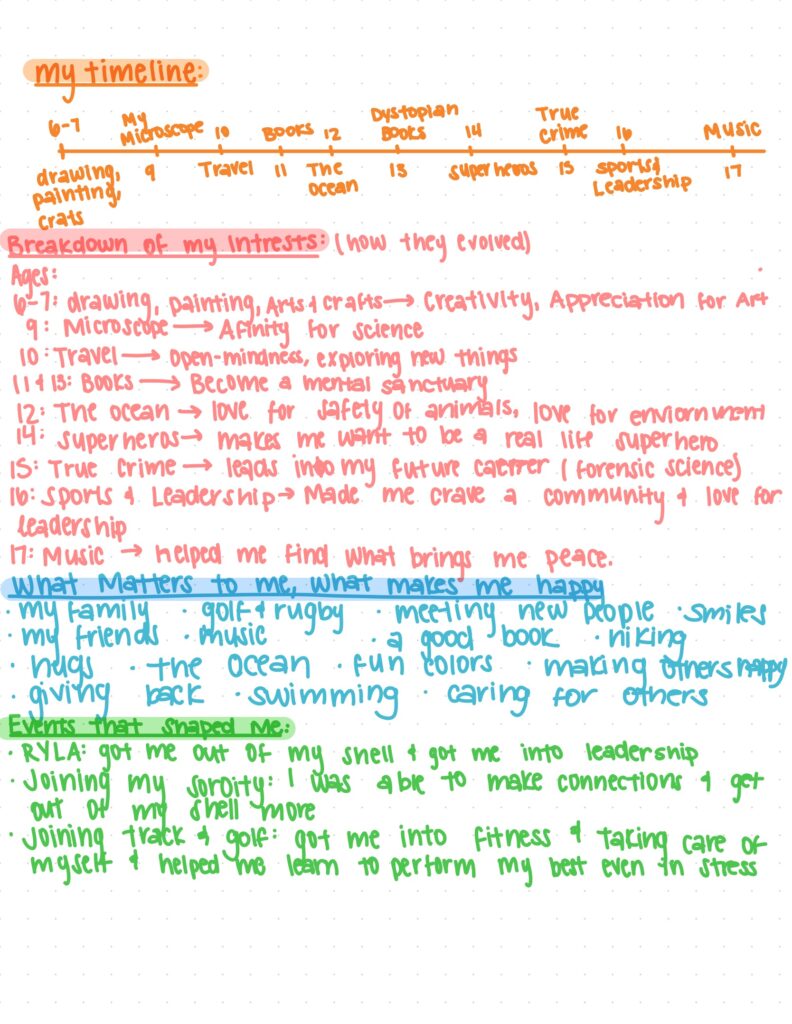 my timeline:
6-7 My Microscope 10 Books 12 Dystopian Books 14 True Crime 16 Music
drawing, painting, crats 9 Travel 11 The ocean 13 superheros 15 sports & Leadership 17
Breakdown of my Intrests: (how they evolved)
Ages:
6-7: drawing, painting, Arts & crafts → Creativity, Appreciation for Art
9: Microscope → Afinity for science
10: Travel → open-mindness, exploring new things
11 & 13: Books → Become a mental sanctuary
12: The ocean → love for safety of animals, love for enviornment
14: superheros → makes me want to be a real life superhero
15: True Crime → leads into my future career (forensic science)
16: Sports & Leadership → Made me crave a community & love for
leadership
17: Music → helped me find what brings me peace.
What Matters to me, what makes me happy
· my family · golf & rugby · meeting new people · smiles
· my friends · music · a good book · hiking
· hugs · the ocean · fun colors · making others happy
· giving back · swimming · caring for others
Events that shaped Me:
· RYLA: got me out of my shell & got me into leadership
· Joining my sordity: I was able to make connections & get
out of my shell more
· Joining track & golf: got me into fitness & taking care of
myself & helped me learn to perform my best even in stress